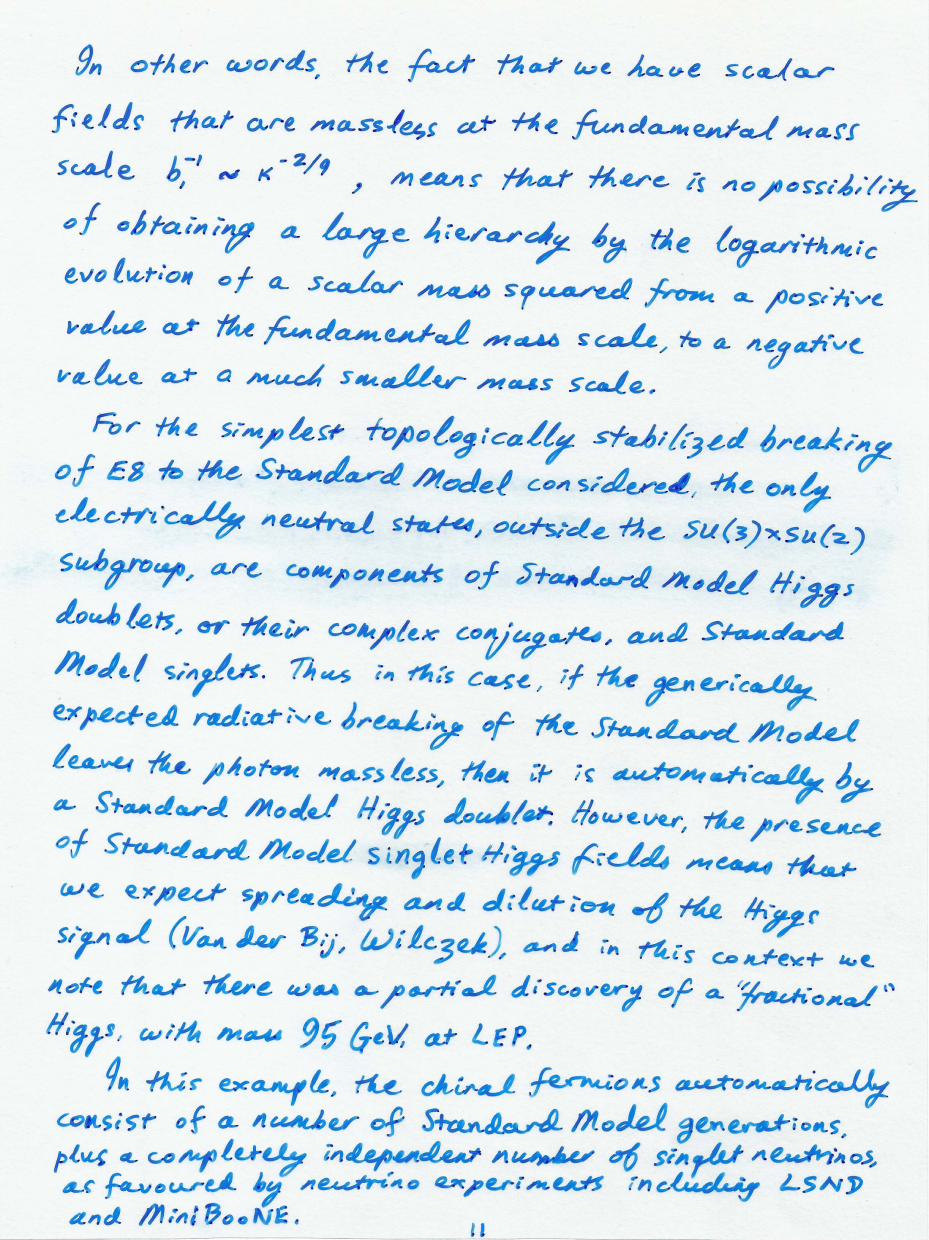 In other words, the fact that we have scalar
fields that are massless at the fundamental mass
scale b₁⁻¹ ~ κ^{-2/9}, means that there is no possibility
of obtaining a large hierarchy by the logarithmic
evolution of a scalar mass squared from a positive
value at the fundamental mass scale, to a negative
value at a much smaller mass scale.
For the simplest topologically stabilized breaking
of E8 to the Standard Model considered, the only
electrically neutral states, outside the SU(3)×SU(2)
subgroup, are components of Standard Model Higgs
doublets, or their complex conjugates, and Standard
Model singlets. Thus in this case, if the generically
expected radiative breaking of the Standard Model
leaves the photon massless, then it is automatically by
a Standard Model Higgs doublet. However, the presence
of Standard Model singlet Higgs fields means that
we expect spreading and dilution of the Higgs
signal (Van der Bij, Wilczek), and in this context we
note that there was a partial discovery of a "fractional"
Higgs, with mass 95 GeV, at LEP.
In this example, the chiral fermions automatically
consist of a number of Standard Model generations,
plus a completely independent number of singlet neutrinos,
as favoured by neutrino experiments including LSND
and MiniBooNE.
11